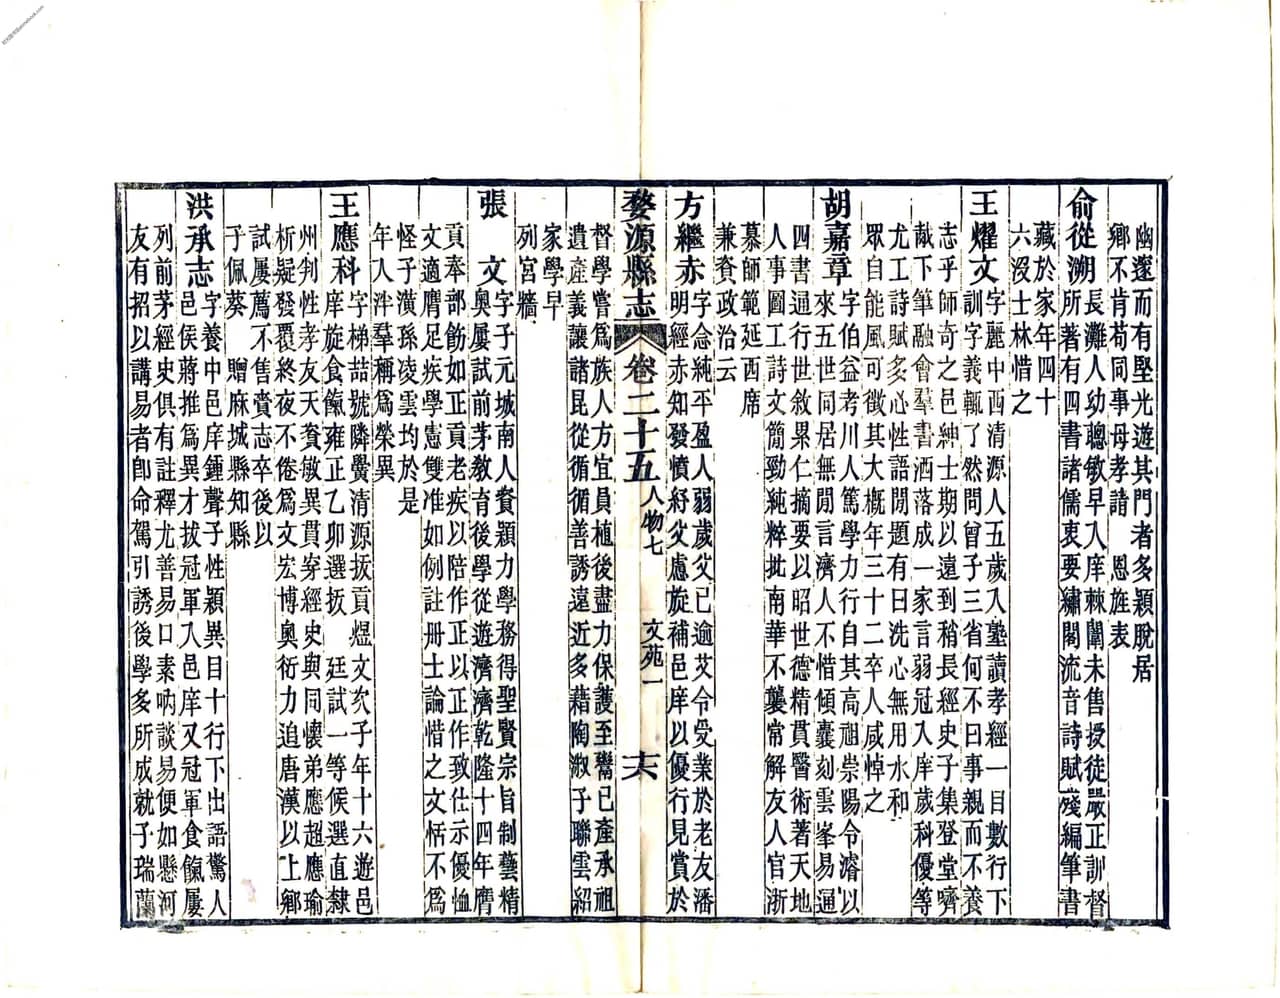 幽邃而有堅光遊其門者多穎脫居
鄉不肯苟同事母孝請　恩旌表
俞從溯長灘人幼聰敏早入庠棘闈未售授徒嚴正訓督
所著有四書諸儒衷要繡閣流音詩賦殘編筆書
藏於家年四十
六沒士林惜之
王燿文字麗中西清源人五歲入塾讀孝經一目數行下
訓字義輒了然問曾子三省何不曰事親而不養
志乎師奇之邑紳士期以遠到稍長經史子集登堂嚌
胾下筆融會羣書洒落成一家言弱冠入庠歲科優等
尤工詩賦多心性語閒題有曰洗心無用水和
眾自能風可徵其大概年三十二卒人咸悼之
胡嘉章字伯益考川人篤學力行自其高祖崇陽令濬以
來五世同居無閒言濟人不惜傾囊刻雲峯易通
四書通行世敘果仁摘要以昭世德精貫醫術著天地
人事圖工詩文簡勁純粹批南華不襲常解友人官浙
慕師範延西席
兼資政治云
方繼赤字念純平盈人弱歲父已逾艾令受業於老友潘
明經赤知發憤紓父慮旋補邑庠以優行見賞於
婺源縣志　卷二十五　人物七　文苑一　六
督學嘗爲族人方宜員植後盡力保護至鬻已產承祖
遺產義讓諸昆從循循善誘遠近多藉陶淑子聯雲紹
家學早
列宮牆
張　文字子元城南人資穎力學務得聖賢宗旨制藝精
奧屢試前茅教育後學從遊濟濟乾隆十四年膺
貢奉部飭如正貢老疾以陪作正以正作致仕示優恤
文適膺足疾學憲雙准如例註冊士論惜之文恬不爲
怪子潢孫凌雲均於是
年人泮羣稱爲榮異
王應科字梯喆號隣黌清源拔貢煜文次子年十六遊邑
庠旋食餼雍正乙卯選拔　廷試一等候選直隸
州判性孝友天資敏異貫穿經史與同懷弟應超應瑜
析疑發覆終夜不倦爲文宏博奧衍力追唐漢以上鄉
試屢薦不售賫志卒後以
子佩葵　贈麻城縣知縣
洪承志字養中邑庠鍾聲子性穎異目十行下出語驚人
邑侯蔣推爲異才拔冠軍入邑庠又冠軍食餼屢
列前茅經史俱有註釋尤善易口素吶談易便如懸河
友有招以講易者卽命駕引誘後學多所成就子瑞蘭